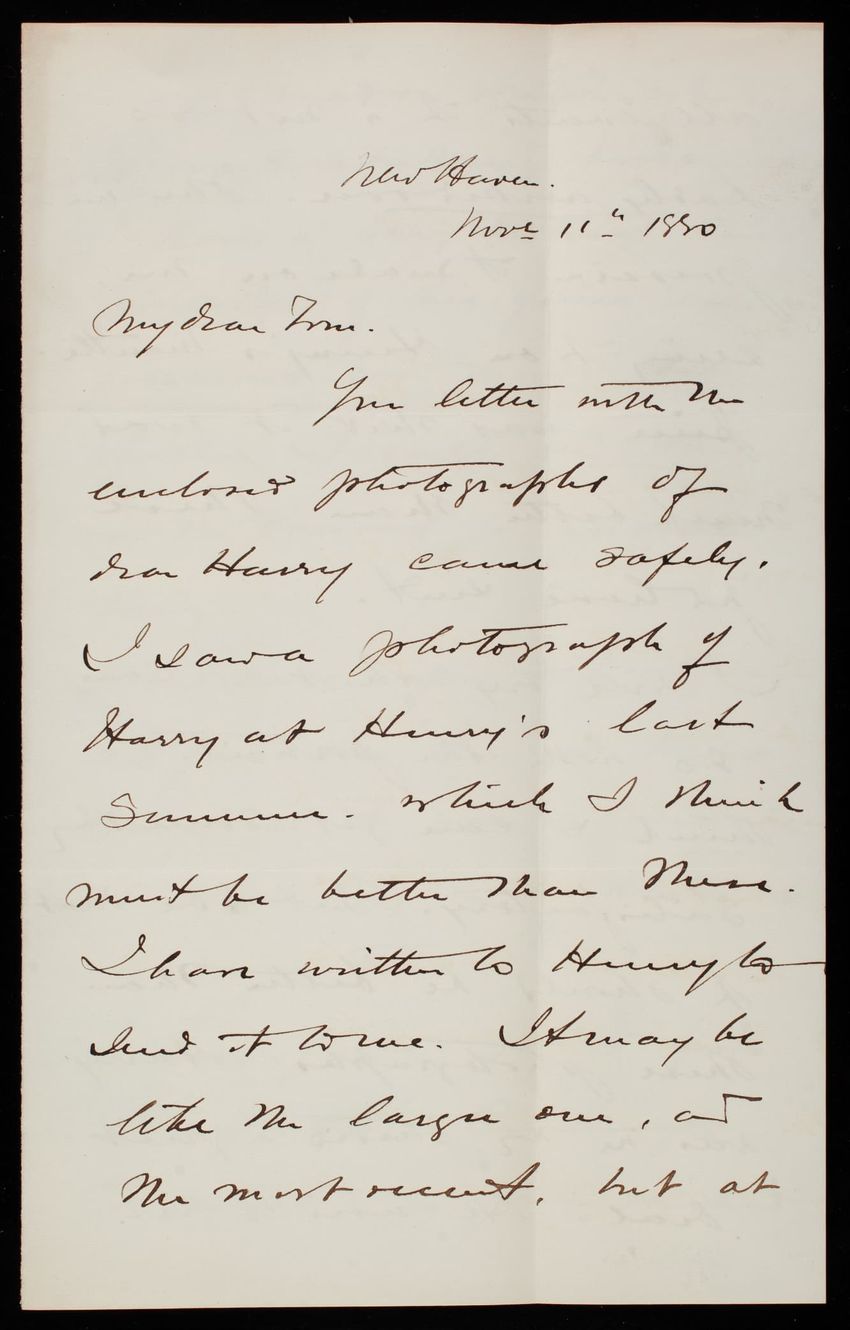 New Haven.
Nov. 11th 1880
My dear Tom.
Your letter with the
enclosed photographs of
dear Harry came safely.
I saw a photograph of
Harry at Henry's last
Summer. which I think
must be better than these.
I have written to Henry to
send it to me. It may be
like the larger one, and
the most recent, but at